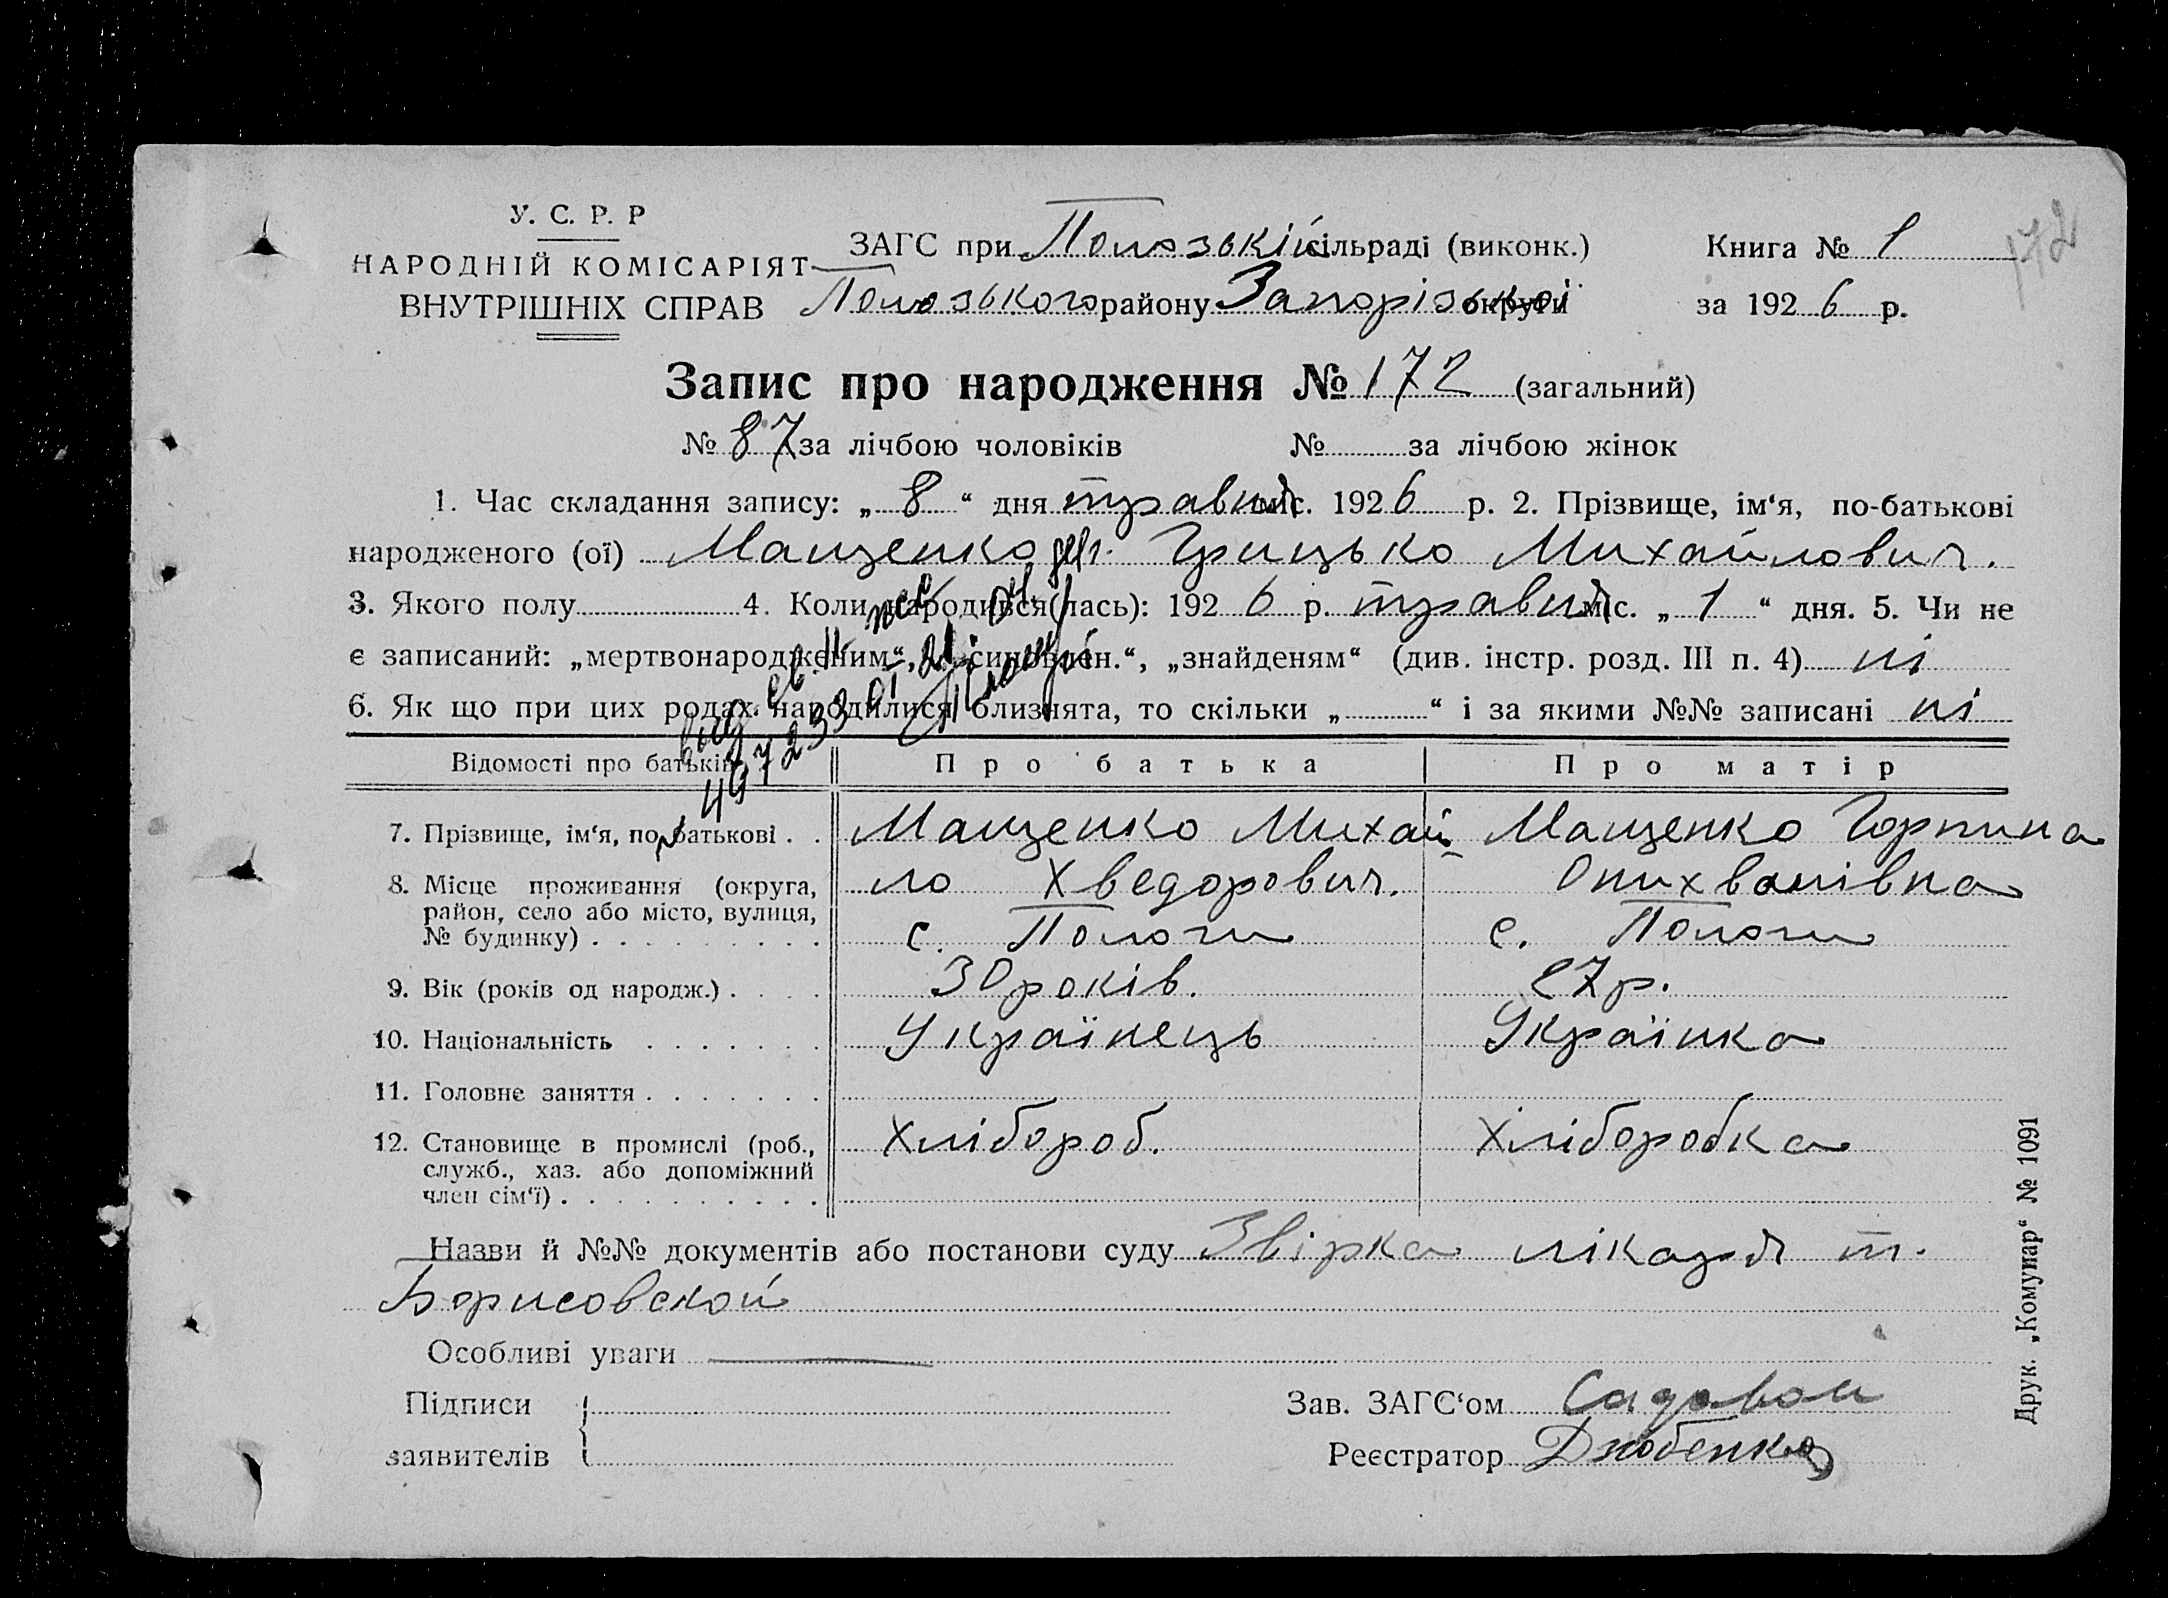 У. С. Р. Р
НАРОДНІЙ КОМІСАРІЯТ
ВНУТРІШНІХ СПРАВ
ЗАГС при Пологській сільраді (виконк.)
Пологського району Запорізької округи
Книга № 1
за 1926 р.
172
Запис про народження № 172 (загальний)
№ 87 за лічбою чоловіків № за лічбою жінок
1. Час складання запису: „8“ дня травня міс. 1926 р. 2. Прізвище, ім‘я, по-батькові
народженого (ої) Мащенко Грицько Михайлович.
3. Якого полу 4. Коли народився(лась): 1926 р. травня міс. „1“ дня. 5. Чи не
є записаний: „мертвонародженим“, „знайденям“ (див. інстр. розд. III п. 4) ні
6. Як що при цих родах народилися близнята, то скільки „ “ і за якими №№ записані ні
Відомості про батьків Про батька Про матір
7. Прізвище, ім‘я, по батькові . . Мащенко Михай Мащенко Горпина
8. Місце проживання (округа, ло Хведорович. Опихванівна
район, село або місто, вулиця,
№ будинку) . . . . . . . . . с. Пологи с. Пологи
9. Вік (років од народж.) . . . . 30 років. 27 р.
10. Національність . . . . . . . Українець Українка
11. Головне заняття . . . . . . .
12. Становище в промислі (роб., Хлібороб. Хліборобка
служб., хаз. або допоміжний
член сім‘ї) . . . . . . . . . .
Назви й №№ документів або постанови суду Звірка лікаря т.
Борисовской
Особливі уваги
Підписи
заявителів
Зав. ЗАГС‘ом Садовой
Реєстратор Дзюбенко
Друк. „Комунар“ № 1091